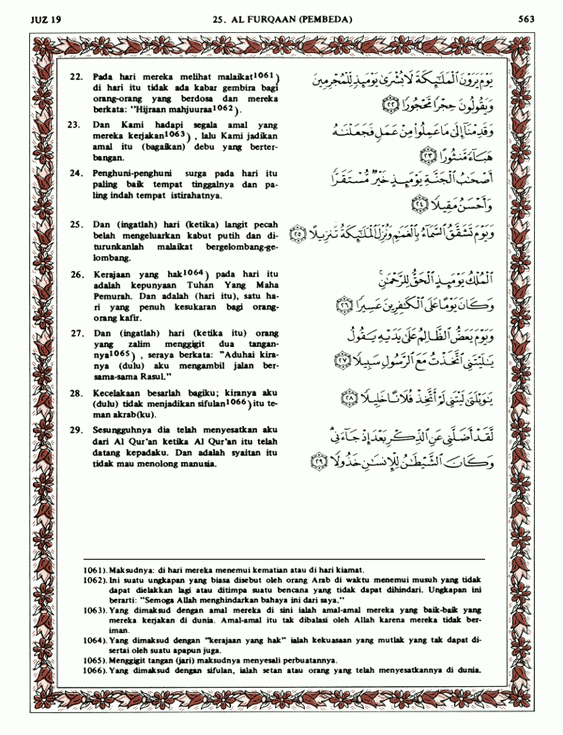 JUZ 19 25. AL FURQAAN (PEMBEDA) 563
22. Pada hari mereka melihat malaikat1061)
di hari itu tidak ada kabar gembira bagi
orang-orang yang berdosa dan mereka
berkata: "Hijraan mahjuuraa1062).
23. Dan Kami hadapi segala amal yang
mereka kerjakan1063) , lalu Kami jadikan
amal itu (bagaikan) debu yang berter-
bangan.
24. Penghuni-penghuni surga pada hari itu
paling baik tempat tinggalnya dan pa-
ling indah tempat istirahatnya.
25. Dan (ingatlah) hari (ketika) langit pecah
belah mengeluarkan kabut putih dan di-
turunkanlah malaikat bergelombang-ge-
lombang.
26. Kerajaan yang hak1064) pada hari itu
adalah kepunyaan Tuhan Yang Maha
Pemurah. Dan adalah (hari itu), satu ha-
ri yang penuh kesukaran bagi orang-
orang kafir.
27. Dan (ingatlah) hari (ketika itu) orang
yang zalim menggigit dua tangan-
nya1065) , seraya berkata: "Aduhai kira-
nya (dulu) aku mengambil jalan ber-
sama-sama Rasul."
28. Kecelakaan besarlah bagiku; kiranya aku
(dulu) tidak menjadikan sifulan1066)itu te-
man akrab(ku).
29. Sesungguhnya dia telah menyesatkan aku
dari Al Qur'an ketika Al Qur'an itu telah
datang kepadaku. Dan adalah syaitan itu
tidak mau menolong manusia.
يَوْمَ يَرَوْنَ الْمَلَٰٓئِكَةَ لَا بُشْرَىٰ يَوْمَئِذٍ لِّلْمُجْرِمِينَ
وَيَقُولُونَ حِجْرًا مَّحْجُورًا ﴿٢٢﴾
وَقَدِمْنَآ إِلَىٰ مَا عَمِلُوا۟ مِنْ عَمَلٍ فَجَعَلْنَٰهُ
هَبَآءً مَّنثُورًا ﴿٢٣﴾
أَصْحَٰبُ الْجَنَّةِ يَوْمَئِذٍ خَيْرٌ مُّسْتَقَرًّا
وَأَحْسَنُ مَقِيلًا ﴿٢٤﴾
وَيَوْمَ تَشَقَّقُ السَّمَآءُ بِالْغَمَٰمِ وَنُزِّلَ الْمَلَٰٓئِكَةُ تَنزِيلًا ﴿٢٥﴾
الْمُلْكُ يَوْمَئِذٍ الْحَقُّ لِلرَّحْمَٰنِ
وَكَانَ يَوْمًا عَلَى الْكَٰفِرِينَ عَسِيرًا ﴿٢٦﴾
وَيَوْمَ يَعَضُّ الظَّالِمُ عَلَىٰ يَدَيْهِ يَقُولُ
يَٰلَيْتَنِى اتَّخَذْتُ مَعَ الرَّسُولِ سَبِيلًا ﴿٢٧﴾
يَٰوَيْلَتَىٰ لَيْتَنِى لَمْ أَتَّخِذْ فُلَانًا خَلِيلًا ﴿٢٨﴾
لَّقَدْ أَضَلَّنِى عَنِ الذِّكْرِ بَعْدَ إِذْ جَآءَنِى
وَكَانَ الشَّيْطَٰنُ لِلْإِنسَٰنِ خَذُولًا ﴿٢٩﴾
1061). Maksudnya: di hari mereka menemui kematian atau di hari kiamat.
1062). Ini suatu ungkapan yang biasa disebut oleh orang Arab di waktu menemui musuh yang tidak
dapat dielakkan lagi atau ditimpa suatu bencana yang tidak dapat dihindari. Ungkapan ini
berarti: "Semoga Allah menghindarkan bahaya ini dari saya."
1063). Yang dimaksud dengan amal mereka di sini ialah amal-amal mereka yang baik-baik yang
mereka kerjakan di dunia. Amal-amal itu tak dibalasi oleh Allah karena mereka tidak ber-
iman.
1064). Yang dimaksud dengan "kerajaan yang hak" ialah kekuasaan yang mutlak yang tak dapat di-
sertai oleh suatu apapun juga.
1065). Menggigit tangan (jari) maksudnya menyesali perbuatannya.
1066). Yang dimaksud dengan sifulan, ialah setan atau orang yang telah menyesatkannya di dunia.